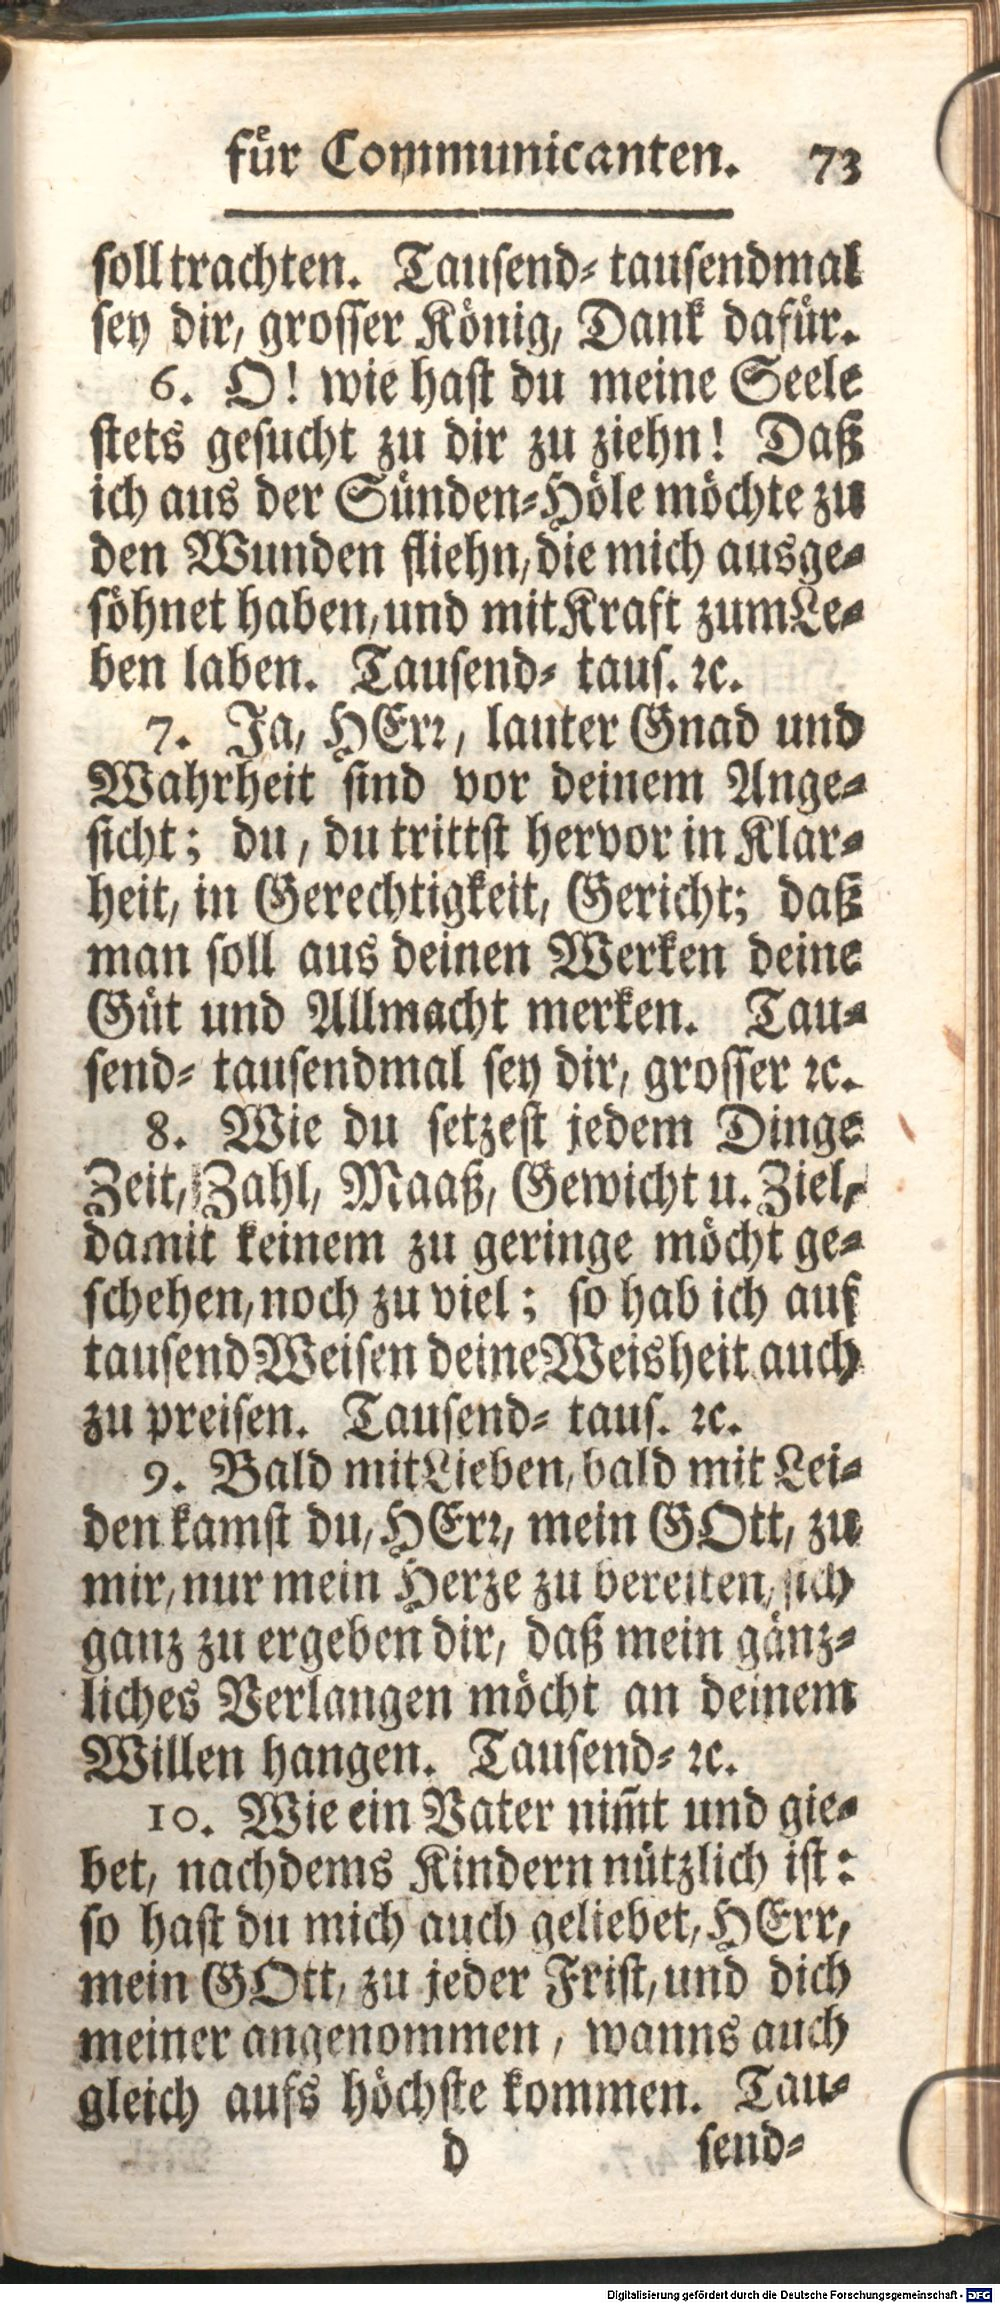 für Communicanten. 73
soll trachten. Tausend-tausendmal
sey dir, grosser König, Dank dafür.
6. O! wie hast du meine Seele
stets gesucht zu dir zu ziehn! Daß
ich aus der Sünden-Höle möchte zu
den Wunden fliehn, die mich ausge-
söhnet haben, und mit Kraft zum Le-
ben laben. Tausend- taus. ꝛc.
7. Ja, HErr, lauter Gnad und
Wahrheit sind vor deinem Ange-
sicht; du, du trittst hervor in Klar-
heit, in Gerechtigkeit, Gericht; daß
man soll aus deinen Werken deine
Güt und Allmacht merken. Tau-
send- tausendmal sey dir, grosser ꝛc.
8. Wie du setzest jedem Dinge
Zeit, Zahl, Maaß, Gewicht u. Ziel,
damit keinem zu geringe möcht ge-
schehen, noch zu viel; so hab ich auf
tausend Weisen deine Weisheit auch
zu preisen. Tausend- taus. ꝛc.
9. Bald mit Lieben, bald mit Lei-
den kamst du, HErr, mein GOtt, zu
mir, nur mein Herze zu bereiten, sich
ganz zu ergeben dir, daß mein gänz-
liches Verlangen möcht an deinem
Willen hangen. Tausend- ꝛc.
10. Wie ein Vater nim̃t und gie-
bet, nachdems Kindern nützlich ist:
so hast du mich auch geliebet, HErr,
mein GOtt, zu jeder Frist, und dich
meiner angenommen, wanns auch
gleich aufs höchste kommen. Tau-
d send-
Digitalisierung gefördert durch die Deutsche Forschungsgemeinschaft - DFG